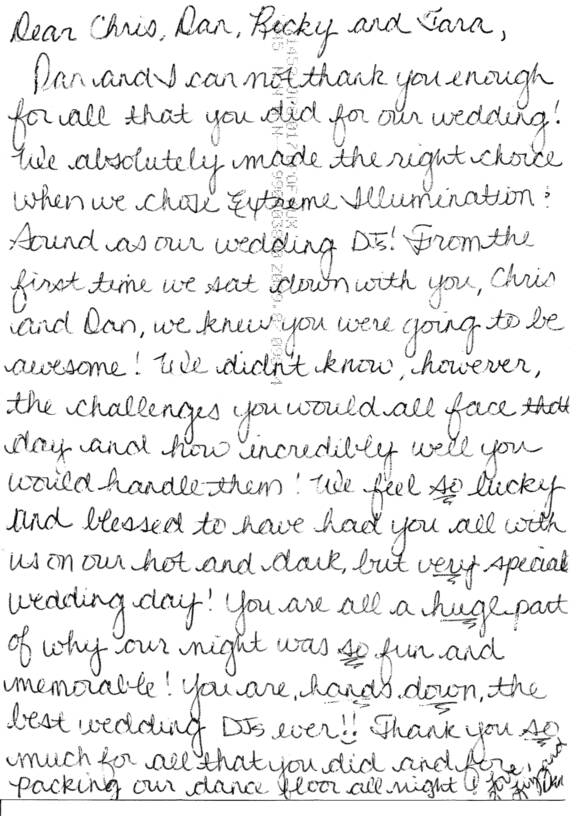 Dear Chris, Dan, Becky and Tara,
Dan and I can not thank you enough
for all that you did for our wedding!
We absolutely made the right choice
when we chose Extreme Illumination &
Sound as our wedding DJs! From the
first time we sat down with you, Chris
and Dan, we knew you were going to be
awesome! We didn't know, however,
the challenges you would all face that
day and how incredibly well you
would handle them! We feel so lucky
and blessed to have had you all with
us on our hot and dark, but very special
wedding day! You are all a huge part
of why our night was so fun and
memorable! You are, hands down, the
best wedding DJs ever!! Thank you so
much for all that you did and for
packing our dance floor all night!
Love,
and
Dan